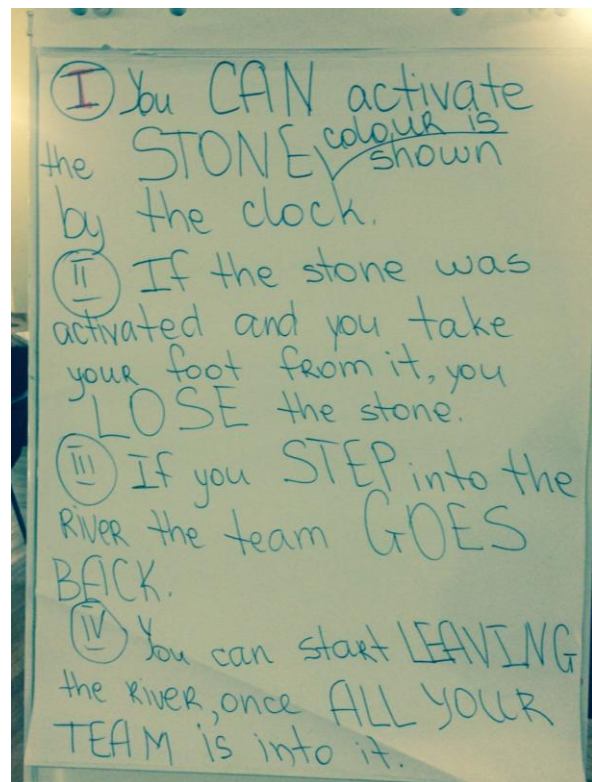 I You CAN activate
the STONE colour is shown
by the clock.
II If the stone was
activated and you take
your foot from it, you
LOSE the stone.
III If you STEP into the
RIVER the team GOES
BACK.
IV You can start LEAVING
the RIVER, once ALL YOUR
TEAM is into it.